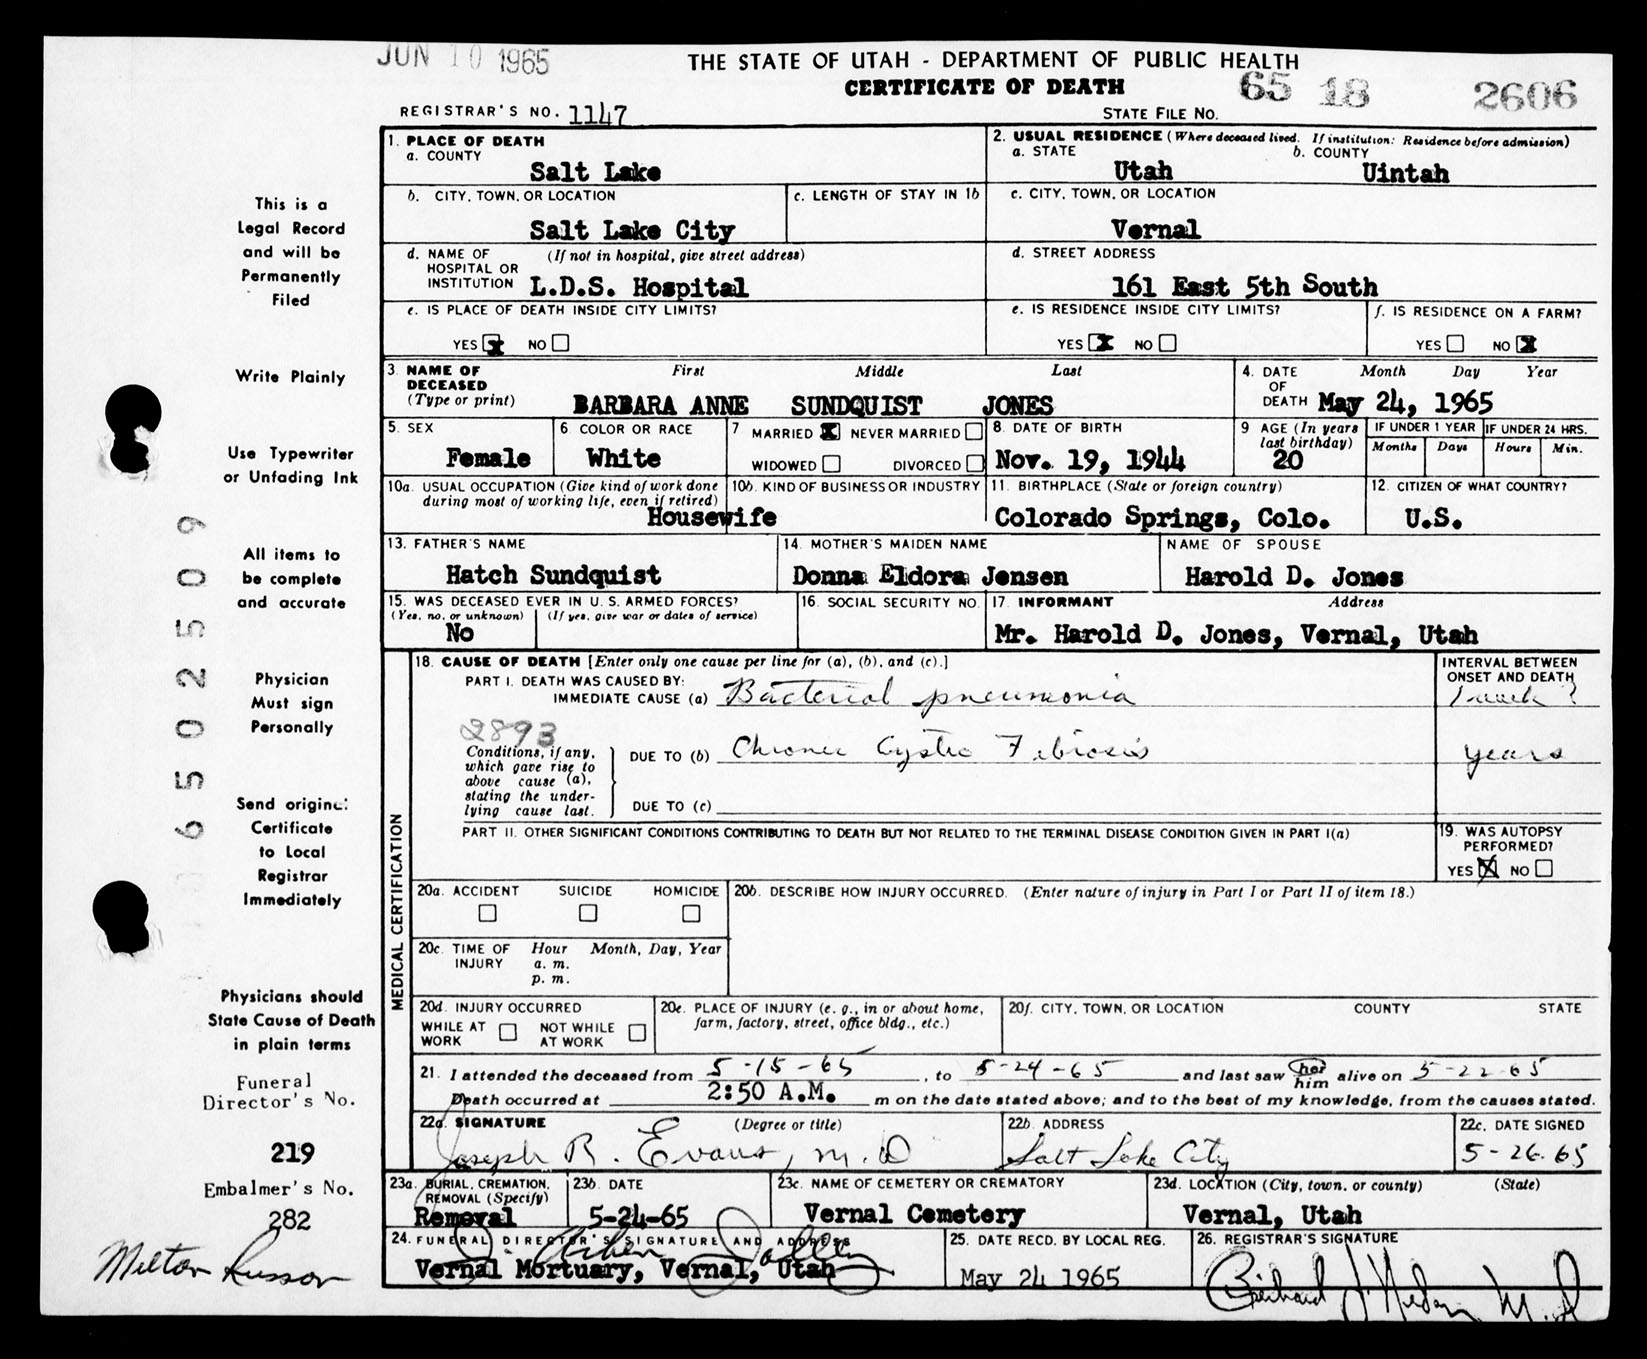 JUN 10 1965
THE STATE OF UTAH - DEPARTMENT OF PUBLIC HEALTH
CERTIFICATE OF DEATH
REGISTRAR'S NO. 1147
STATE FILE NO. 65 18 2606
This is a
Legal Record
and will be
Permanently
Filed
Write Plainly
Use Typewriter
or Unfading Ink
All items to
be complete
and accurate
Physician
Must sign
Personally
Send original
Certificate
to Local
Registrar
Immediately
Physicians should
State Cause of Death
in plain terms
Funeral
Director's No.
219
Embalmer's No.
282
65025509
1. PLACE OF DEATH
a. COUNTY
Salt Lake
2. USUAL RESIDENCE (Where deceased lived. If institution: Residence before admission)
a. STATE b. COUNTY
Utah Uintah
b. CITY, TOWN, OR LOCATION
Salt Lake City
c. LENGTH OF STAY IN 1b
c. CITY, TOWN, OR LOCATION
Vernal
d. NAME OF (If not in hospital, give street address)
HOSPITAL OR
INSTITUTION L.D.S. Hospital
d. STREET ADDRESS
161 East 5th South
e. IS PLACE OF DEATH INSIDE CITY LIMITS?
YES X NO
e. IS RESIDENCE INSIDE CITY LIMITS?
YES X NO
f. IS RESIDENCE ON A FARM?
YES NO X
3. NAME OF First Middle Last
DECEASED
(Type or print) BARBARA ANNE SUNDQUIST JONES
4. DATE Month Day Year
OF
DEATH May 24, 1965
5. SEX
Female
6. COLOR OR RACE
White
7 MARRIED X NEVER MARRIED
WIDOWED DIVORCED
8. DATE OF BIRTH
Nov. 19, 1944
9 AGE (In years
last birthday)
20
IF UNDER 1 YEAR IF UNDER 24 HRS.
Months Days Hours Min.
10a. USUAL OCCUPATION (Give kind of work done
during most of working life, even if retired)
Housewife
10b. KIND OF BUSINESS OR INDUSTRY
11. BIRTHPLACE (State or foreign country)
Colorado Springs, Colo.
12. CITIZEN OF WHAT COUNTRY?
U.S.
13. FATHER'S NAME
Hatch Sundquist
14. MOTHER'S MAIDEN NAME
Donna Eldora Jensen
NAME OF SPOUSE
Harold D. Jones
15. WAS DECEASED EVER IN U.S. ARMED FORCES?
(Yes, no, or unknown) (If yes, give war or dates of service)
No
16. SOCIAL SECURITY NO.
17. INFORMANT Address
Mr. Harold D. Jones, Vernal, Utah
MEDICAL CERTIFICATION
18. CAUSE OF DEATH [Enter only one cause per line for (a), (b), and (c).]
INTERVAL BETWEEN
ONSET AND DEATH
PART I. DEATH WAS CAUSED BY:
IMMEDIATE CAUSE (a) Bacterial pneumonia 1 week?
2893
Conditions, if any,
which gave rise to
above cause (a),
stating the under-
lying cause last.
DUE TO (b) Chronic Cystic Fibrosis years
DUE TO (c)
PART II. OTHER SIGNIFICANT CONDITIONS CONTRIBUTING TO DEATH BUT NOT RELATED TO THE TERMINAL DISEASE CONDITION GIVEN IN PART I(a)
19. WAS AUTOPSY
PERFORMED?
YES X NO
20a. ACCIDENT SUICIDE HOMICIDE
20b. DESCRIBE HOW INJURY OCCURRED. (Enter nature of injury in Part I or Part II of item 18.)
20c. TIME OF Hour Month, Day, Year
INJURY a. m.
p. m.
20d. INJURY OCCURRED
WHILE AT NOT WHILE
WORK AT WORK
20e. PLACE OF INJURY (e. g., in or about home,
farm, factory, street, office bldg., etc.)
20f. CITY, TOWN, OR LOCATION COUNTY STATE
21. I attended the deceased from 5-15-65, to 5-24-65 and last saw her him alive on 5-22-65
Death occurred at 2:50 A.M. m on the date stated above; and to the best of my knowledge, from the causes stated.
22a. SIGNATURE (Degree or title)
Joseph R. Evans, M.D
22b. ADDRESS
Salt Lake City
22c. DATE SIGNED
5-26-65
23a. BURIAL, CREMATION,
REMOVAL (Specify)
Removal
23b. DATE
5-24-65
23c. NAME OF CEMETERY OR CREMATORY
Vernal Cemetery
23d. LOCATION (City, town, or county) (State)
Vernal, Utah
24. FUNERAL DIRECTOR'S SIGNATURE AND ADDRESS
Vernal Mortuary, Vernal, Utah
25. DATE RECD. BY LOCAL REG.
May 24 1965
26. REGISTRAR'S SIGNATURE